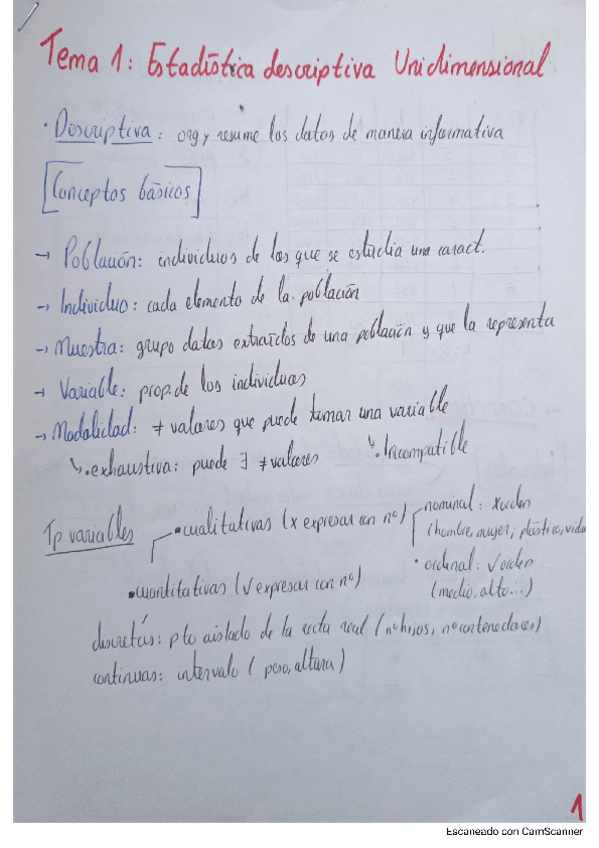 Tema 1: Estadística descriptiva Unidimensional
· Descriptiva: org y resume los datos de manera informativa
Conceptos básicos
→ Población: individuos de los que se estudia una caract.
→ Individuo: cada elemento de la población
→ Muestra: grupo datos extraídos de una población y que la representa
→ Variable: prop. de los individuos
→ Modalidad: ≠ valores que puede tomar una variable
↳ exhaustiva: puede ∃ ≠ valores ↳ Incompatible
Tp variables
• cualitativas (x expresar con nº)
nominal: x orden
(hombre, mujer; plástico, vidr
• ordinal: √ orden
(medio, alto...)
• cuantitativas (√ expresar con nº)
discretas: pto aislado de la recta real (nº hijos, nº contenedores)
continuas: intervalo (peso, altura)
1
Escaneado con CamScanner